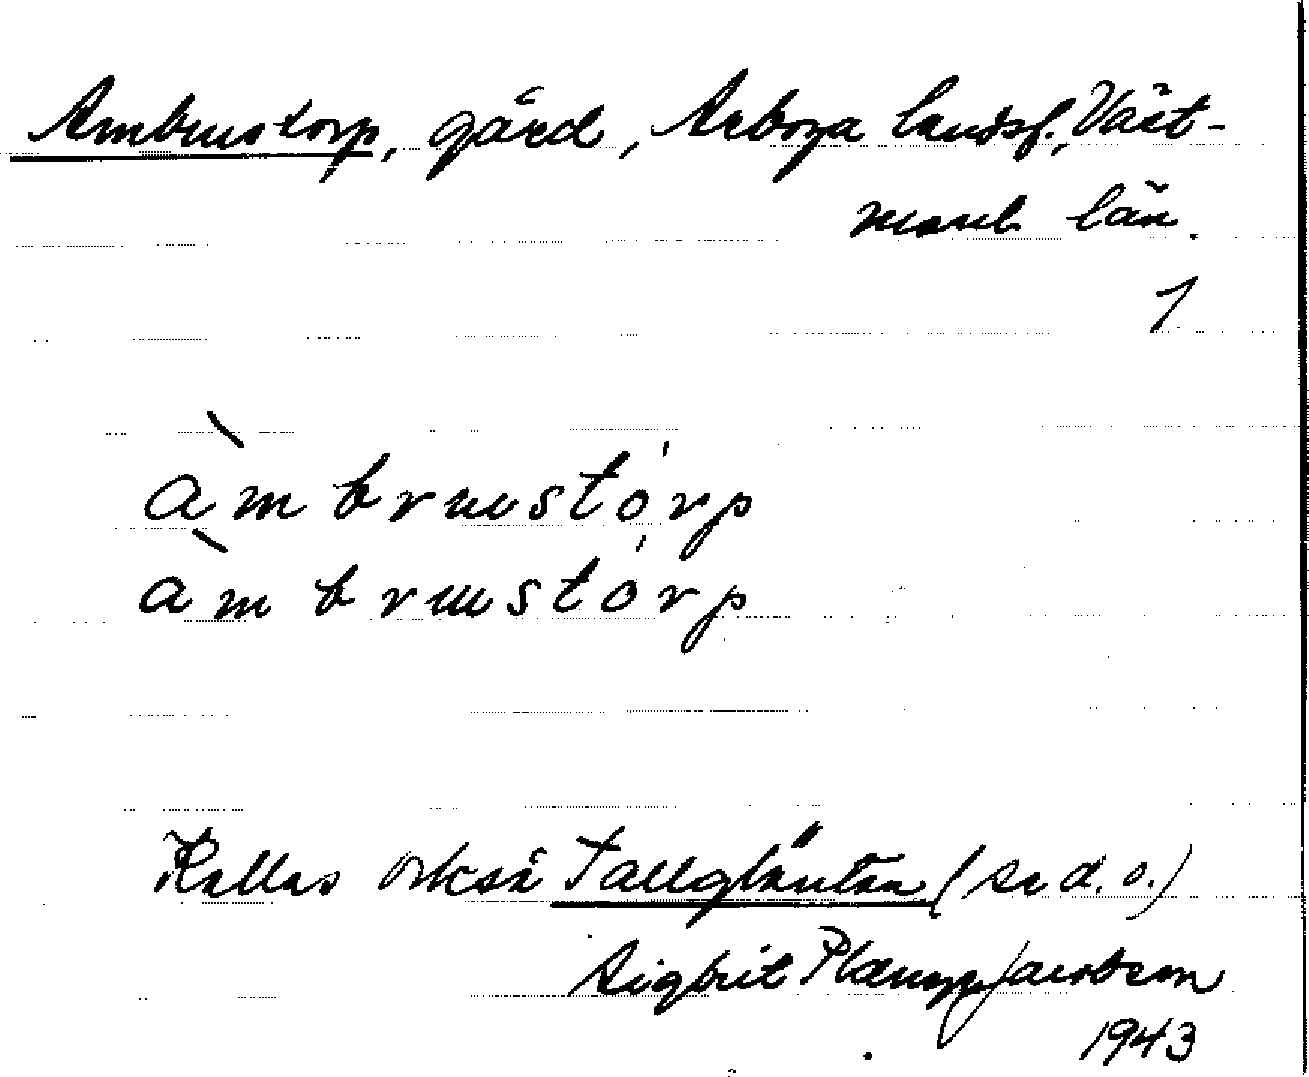 Ambrustorp, gård, Arboga landsf., Väst-
manl. län.
1
àmbrustórp
àmbrustórp
Kallas också Tallgläntan (se d. o.)
Sigbrit Plænge Jacobson
1943